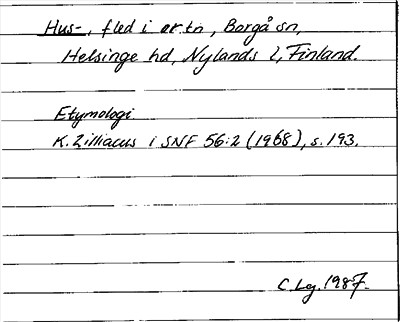 Hus-, fled i ortn, Borgå sn,
Helsinge hd, Nylands l, Finland.
Etymologi
K. Zilliacus i SNF 56:2 (1968), s. 193.
C. Lg. 1987.